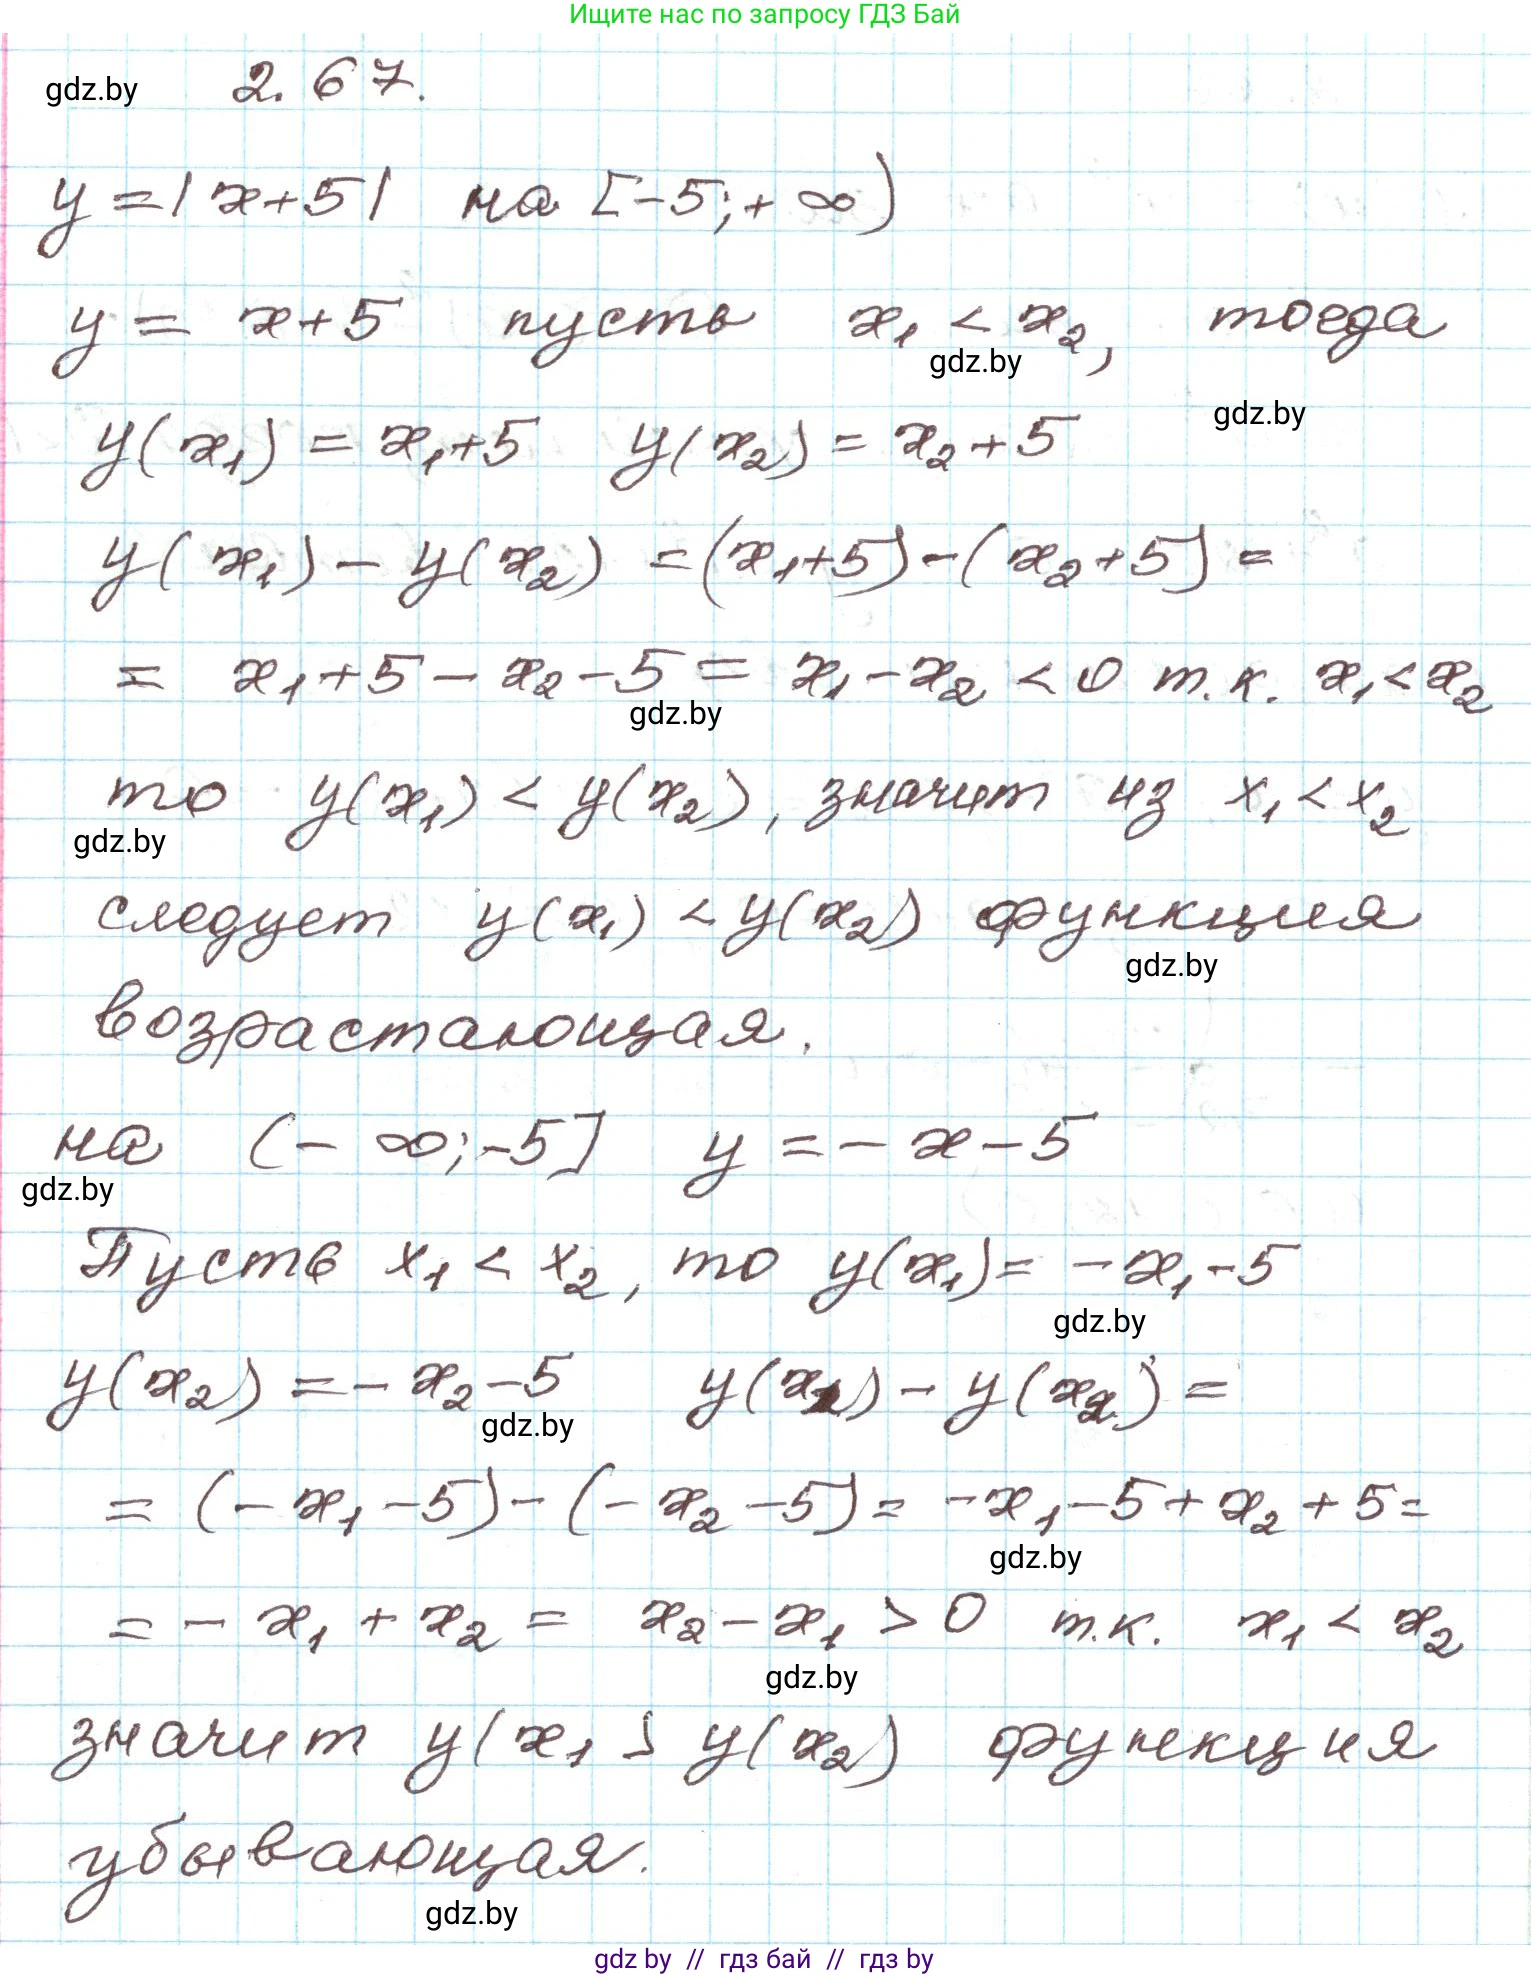 Ищите нас по запросу ГДЗ Бай
gdz.by 2.67.
y = |x+5| на [-5;+∞)
y = x+5 пусть x₁ < x₂, тогда
gdz.by
gdz.by
y(x₁) = x₁+5 y(x₂) = x₂+5
y(x₁) - y(x₂) = (x₁+5) - (x₂+5) =
= x₁+5-x₂-5 = x₁-x₂ < 0 т.к. x₁<x₂
gdz.by
то y(x₁) < y(x₂), значит из x₁<x₂
gdz.by
следует y(x₁) < y(x₂) функция
gdz.by
возрастающая.
на (-∞;-5] y = -x-5
gdz.by
Пусть x₁ < x₂, то y(x₁) = -x₁-5
gdz.by
y(x₂) = -x₂-5 y(x₁) - y(x₂) =
gdz.by
= (-x₁-5) - (-x₂-5) = -x₁-5+x₂+5 =
gdz.by
= -x₁+x₂ = x₂-x₁ > 0 т.к. x₁ < x₂
gdz.by
значит y(x₁ > y(x₂) функция
убывающая.
gdz.by
gdz by // гдз бай // гдз by